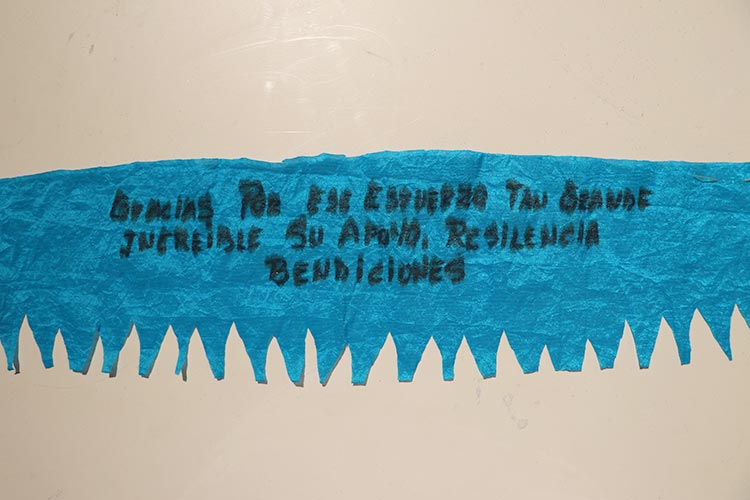 GRACIAS POR ESE ESFUERZO TAN GRANDE
INCREIBLE SU APOYO, RESILENCIA
BENDICIONES